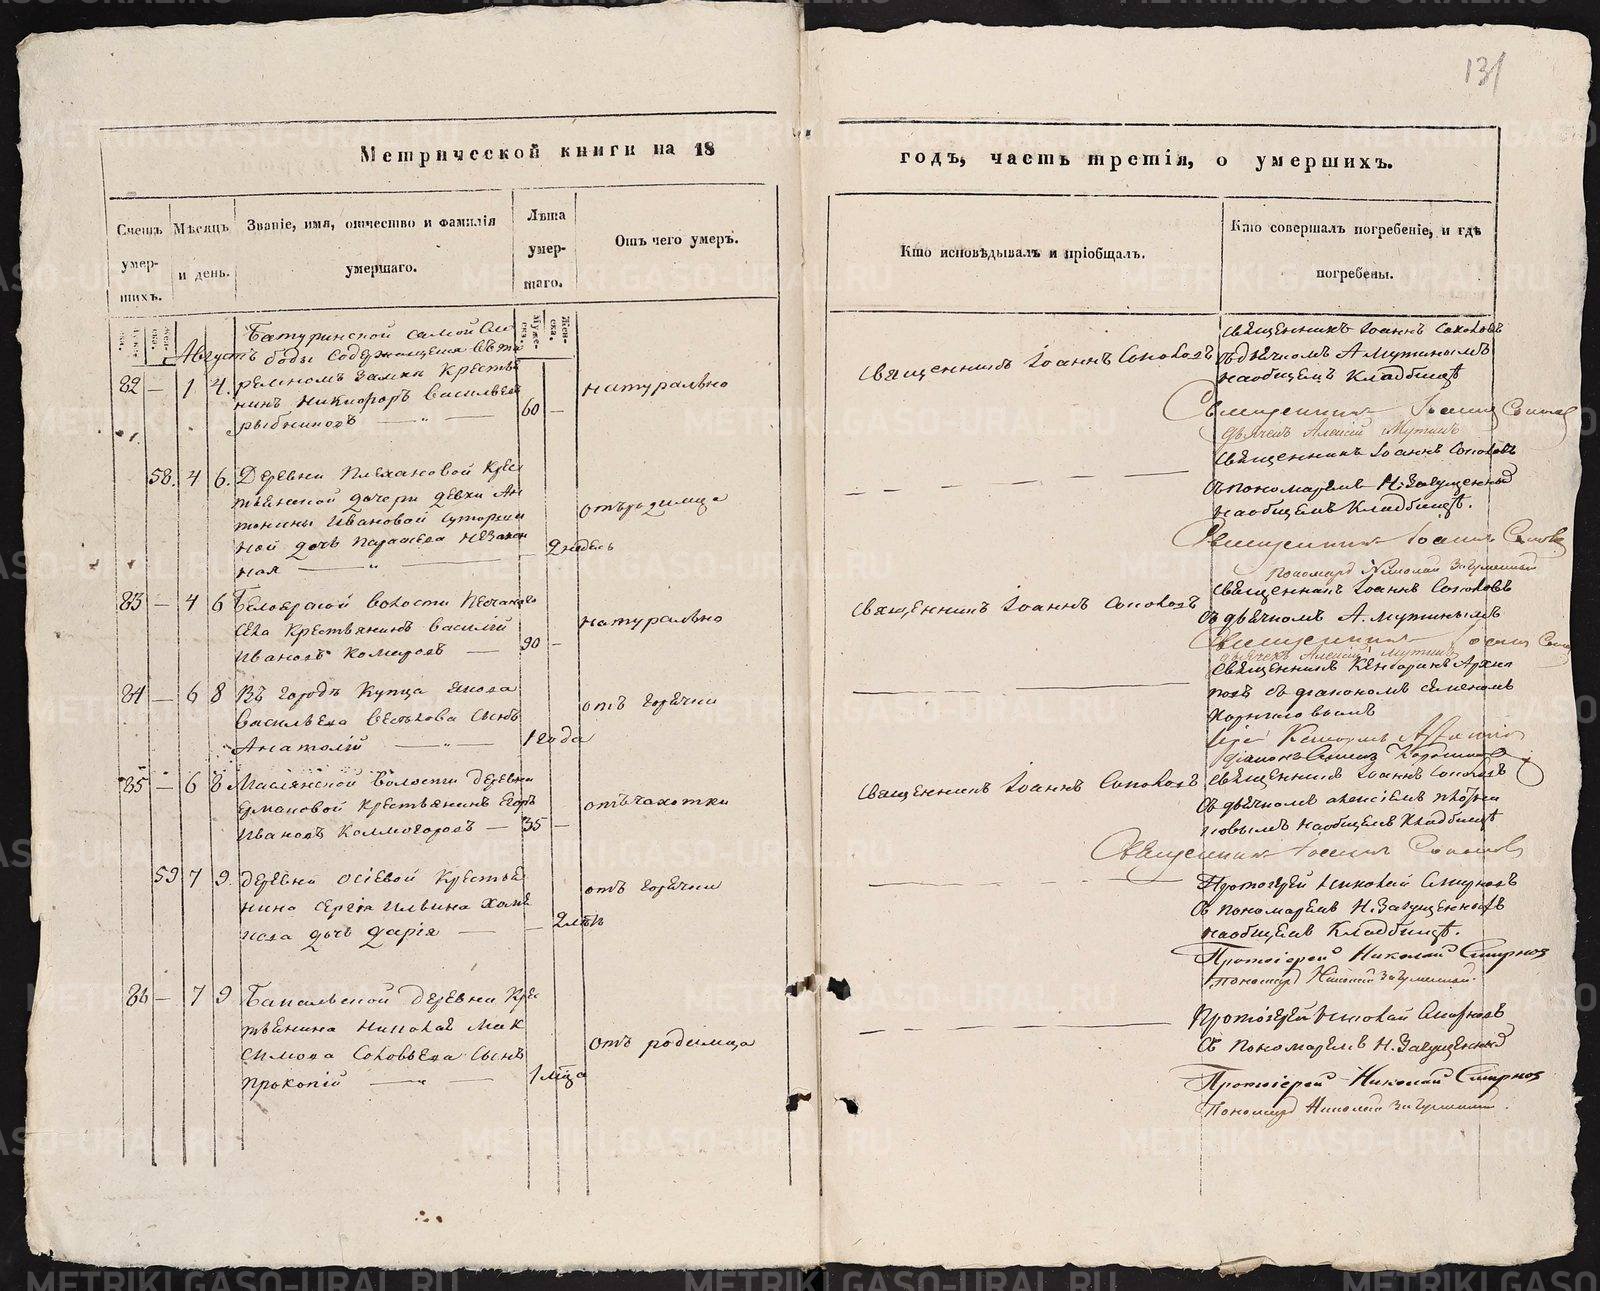 131
Метрической книги на 18
годъ, часть третія, о умершихъ.
Счетъ умер-шихъ.
Мѣсяцъ и день.
Званіе, имя, отчество и фамилія умершаго.
Лѣта умер-шаго.
Отъ чего умеръ.
Кто исповѣдывалъ и пріобщалъ.
Кто совершалъ погребеніе, и гдѣ погребены.
Августъ
Батуринской самой Сло
боды Содержащейся въ тю
ремномъ Замкѣ Крестья
82 — 1 4. нинъ Никифоръ Васильевъ
рыбниковъ — 60 — натурально
Священникъ Іоаннъ Соколовъ
Священникъ Іоаннъ Соколовъ
съ дьячкомъ А. Мутинымъ
на общемъ Кладбищѣ
Священникъ Іоаннъ Соколов
дьячекъ Алексій Мутинъ
58. 4 6. Деревни Плехановой Крес
тьянской дочери девки Ан
тонины Ивановой
ной дочь Параскева Незакон
ная — 2 недель отъ родимца
Священникъ Іоаннъ Соколовъ
съ пономаремъ Н. Загуменный
на общемъ Кладбищѣ.
Священникъ Іоаннъ Соколов
Пономарь Николай Загуменный
83 — 4 6 Белоярской волости Песчанаго
Села Крестьянинъ Василій
Ивановъ Комаровъ — 90 — натурально
Священникъ Іоаннъ Соколовъ
Священникъ Іоаннъ Соколовъ
съ дьячкомъ А. Мутинымъ
Священникъ Іоаннъ Соко
дьячекъ Алексій Мутинъ
84 — 6 8 Въ городѣ Купца Якова
Васильева сынъ
Анатолій — 1 года отъ горячки
Священникъ Архип
повъ съ діакономъ Семеномъ
діаконъ Семенъ
85 — 6 8 Маслянской Волости деревни
Ермаковой Крестьянинъ Егоръ
Ивановъ Колмогоровъ — 35 — отъ чахотки
Священникъ Іоаннъ Соколовъ
Священникъ Іоаннъ Соколовъ
съ дьячкомъ Алексіемъ
на общемъ Кладбищѣ
Священникъ Іоаннъ Соколовъ
59 7 9. деревни Осіевой Крестья
нина Сергія Ильина
дочь Дарія — 2 лѣтъ отъ горячки
Протоіерей Николай Смирновъ
съ пономаремъ Н. Загуменнымъ
на общемъ Кладбищѣ.
Протоіерей Николай Смирнов
Пономарь Николай Загуменный.
86 — 7 9 деревни Крес
тьянина Николая Мак
симова Соловьева сынъ
Прокопій — 1 мѣца отъ родимца
Протоіерей Николай Смирновъ
съ пономаремъ Н. Загуменный
Протоіерей Николай Смирнов
Пономарь Николай Загуменный.
METRIKI.GASO-URAL.RU